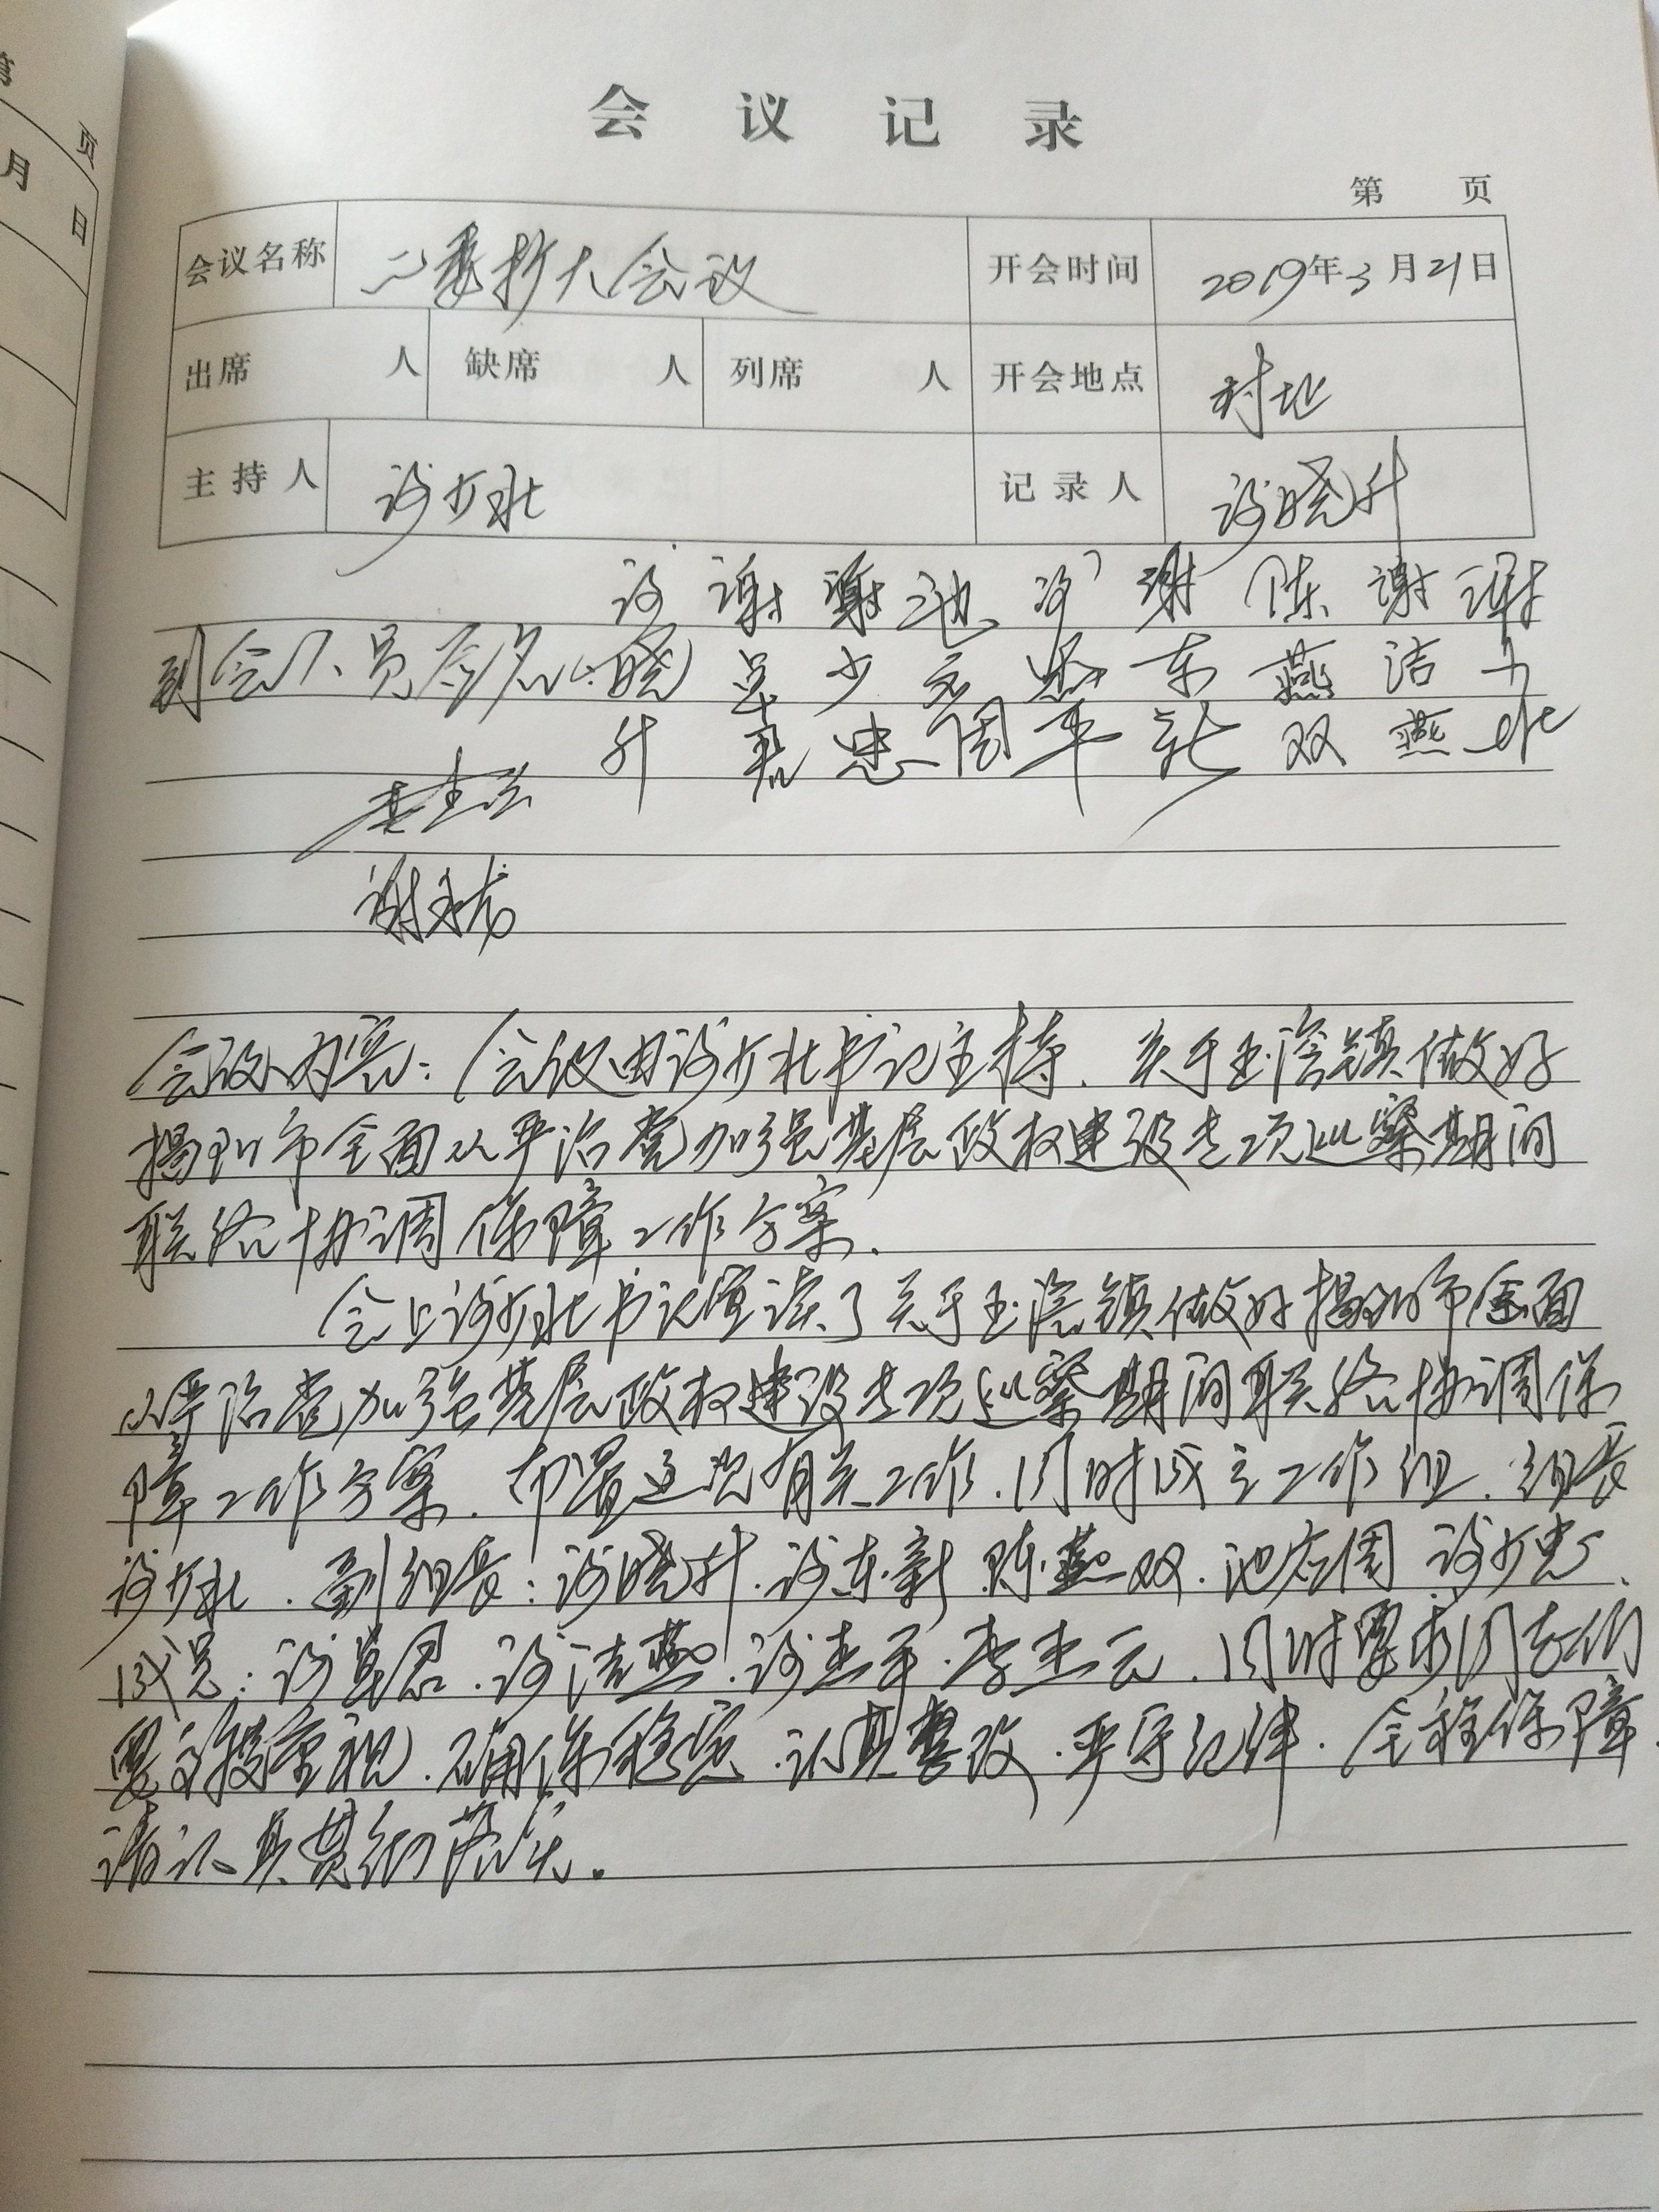 页
月
日
会议记录
第 页
会议名称 二委扩大会议 开会时间 2019年3月21日
出席 人 缺席 人 列席 人 开会地点 村址
主持人 谢少水 记录人 谢晓升
到会人员签名: 谢晓升 谢 君 谢少忠 池 周 平 谢东新 陈燕双 谢洁燕 谢少水
谢
会议内容:会议由谢少水书记主持.关于玉窖镇做好
揭阳市全面从严治党加强基层政权建设专项巡察期间
联络协调保障工作方案.
会上谢少水书记宣读了关于玉窖镇做好揭阳市全面
从严治党加强基层政权建设专项巡察期间联络协调保
障工作方案.布置巡视有关工作.同时成立工作组.组长
谢少水.副组长:谢晓升.谢东新 陈燕双.池 周 谢少忠.
成员:谢 君.谢洁燕.谢 平.李 云.同时要求同志们
要 重视.确保稳定.认真整改.严守纪律.全程保障.
请认真贯彻落实。